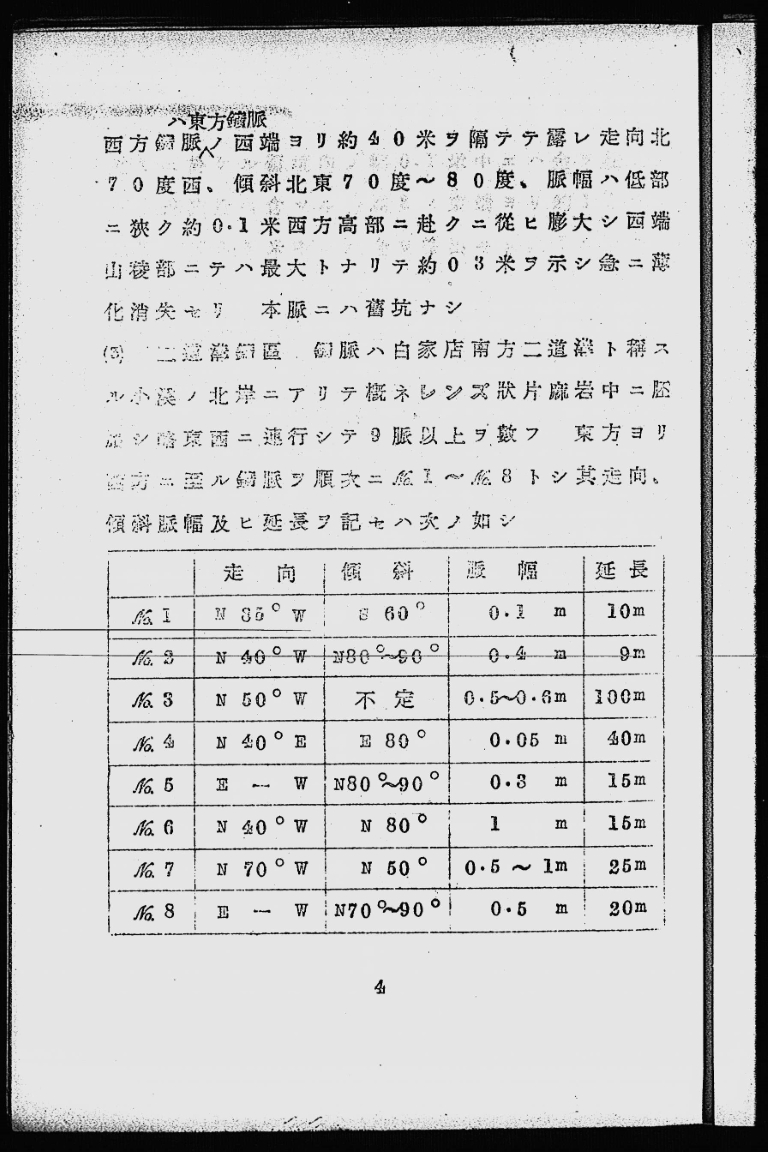 ハ東方鑛脈
西方鑛脈ノ西端ヨリ約40米ヲ隔テテ露レ走向北
70度西、傾斜北東70度～80度、脈幅ハ低部
ニ狹ク約0.1米西方高部ニ赴クニ從ヒ膨大シ西端
山稜部ニテハ最大トナリテ約03米ヲ示シ急ニ薄
化消失セリ 本脈ニハ舊坑ナシ
(3) 二道溝鑛區 鑛脈ハ白家店南方二道溝ト稱ス
ル小溪ノ北岸ニアリテ概ネレンズ狀片麻岩中ニ胚
胎シ略東西ニ連行シテ9脈以上ヲ數フ 東方ヨリ
西方ニ至ル鑛脈ヲ順次ニ№1～№8トシ其走向、
傾斜脈幅及ヒ延長ヲ記セハ次ノ如シ
走向 傾斜 脈幅 延長
№1 N 35°W S 60° 0.1 m 10m
№2 N 40°W N80°~90° 0.4 m 9m
№3 N 50°W 不定 0.5~0.6m 100m
№4 N 40°E E 80° 0.05 m 40m
№5 E — W N80°~90° 0.3 m 15m
№6 N 40°W N 80° 1 m 15m
№7 N 70°W N 50° 0.5 ~ 1m 25m
№8 E — W N70°~90° 0.5 m 20m
4